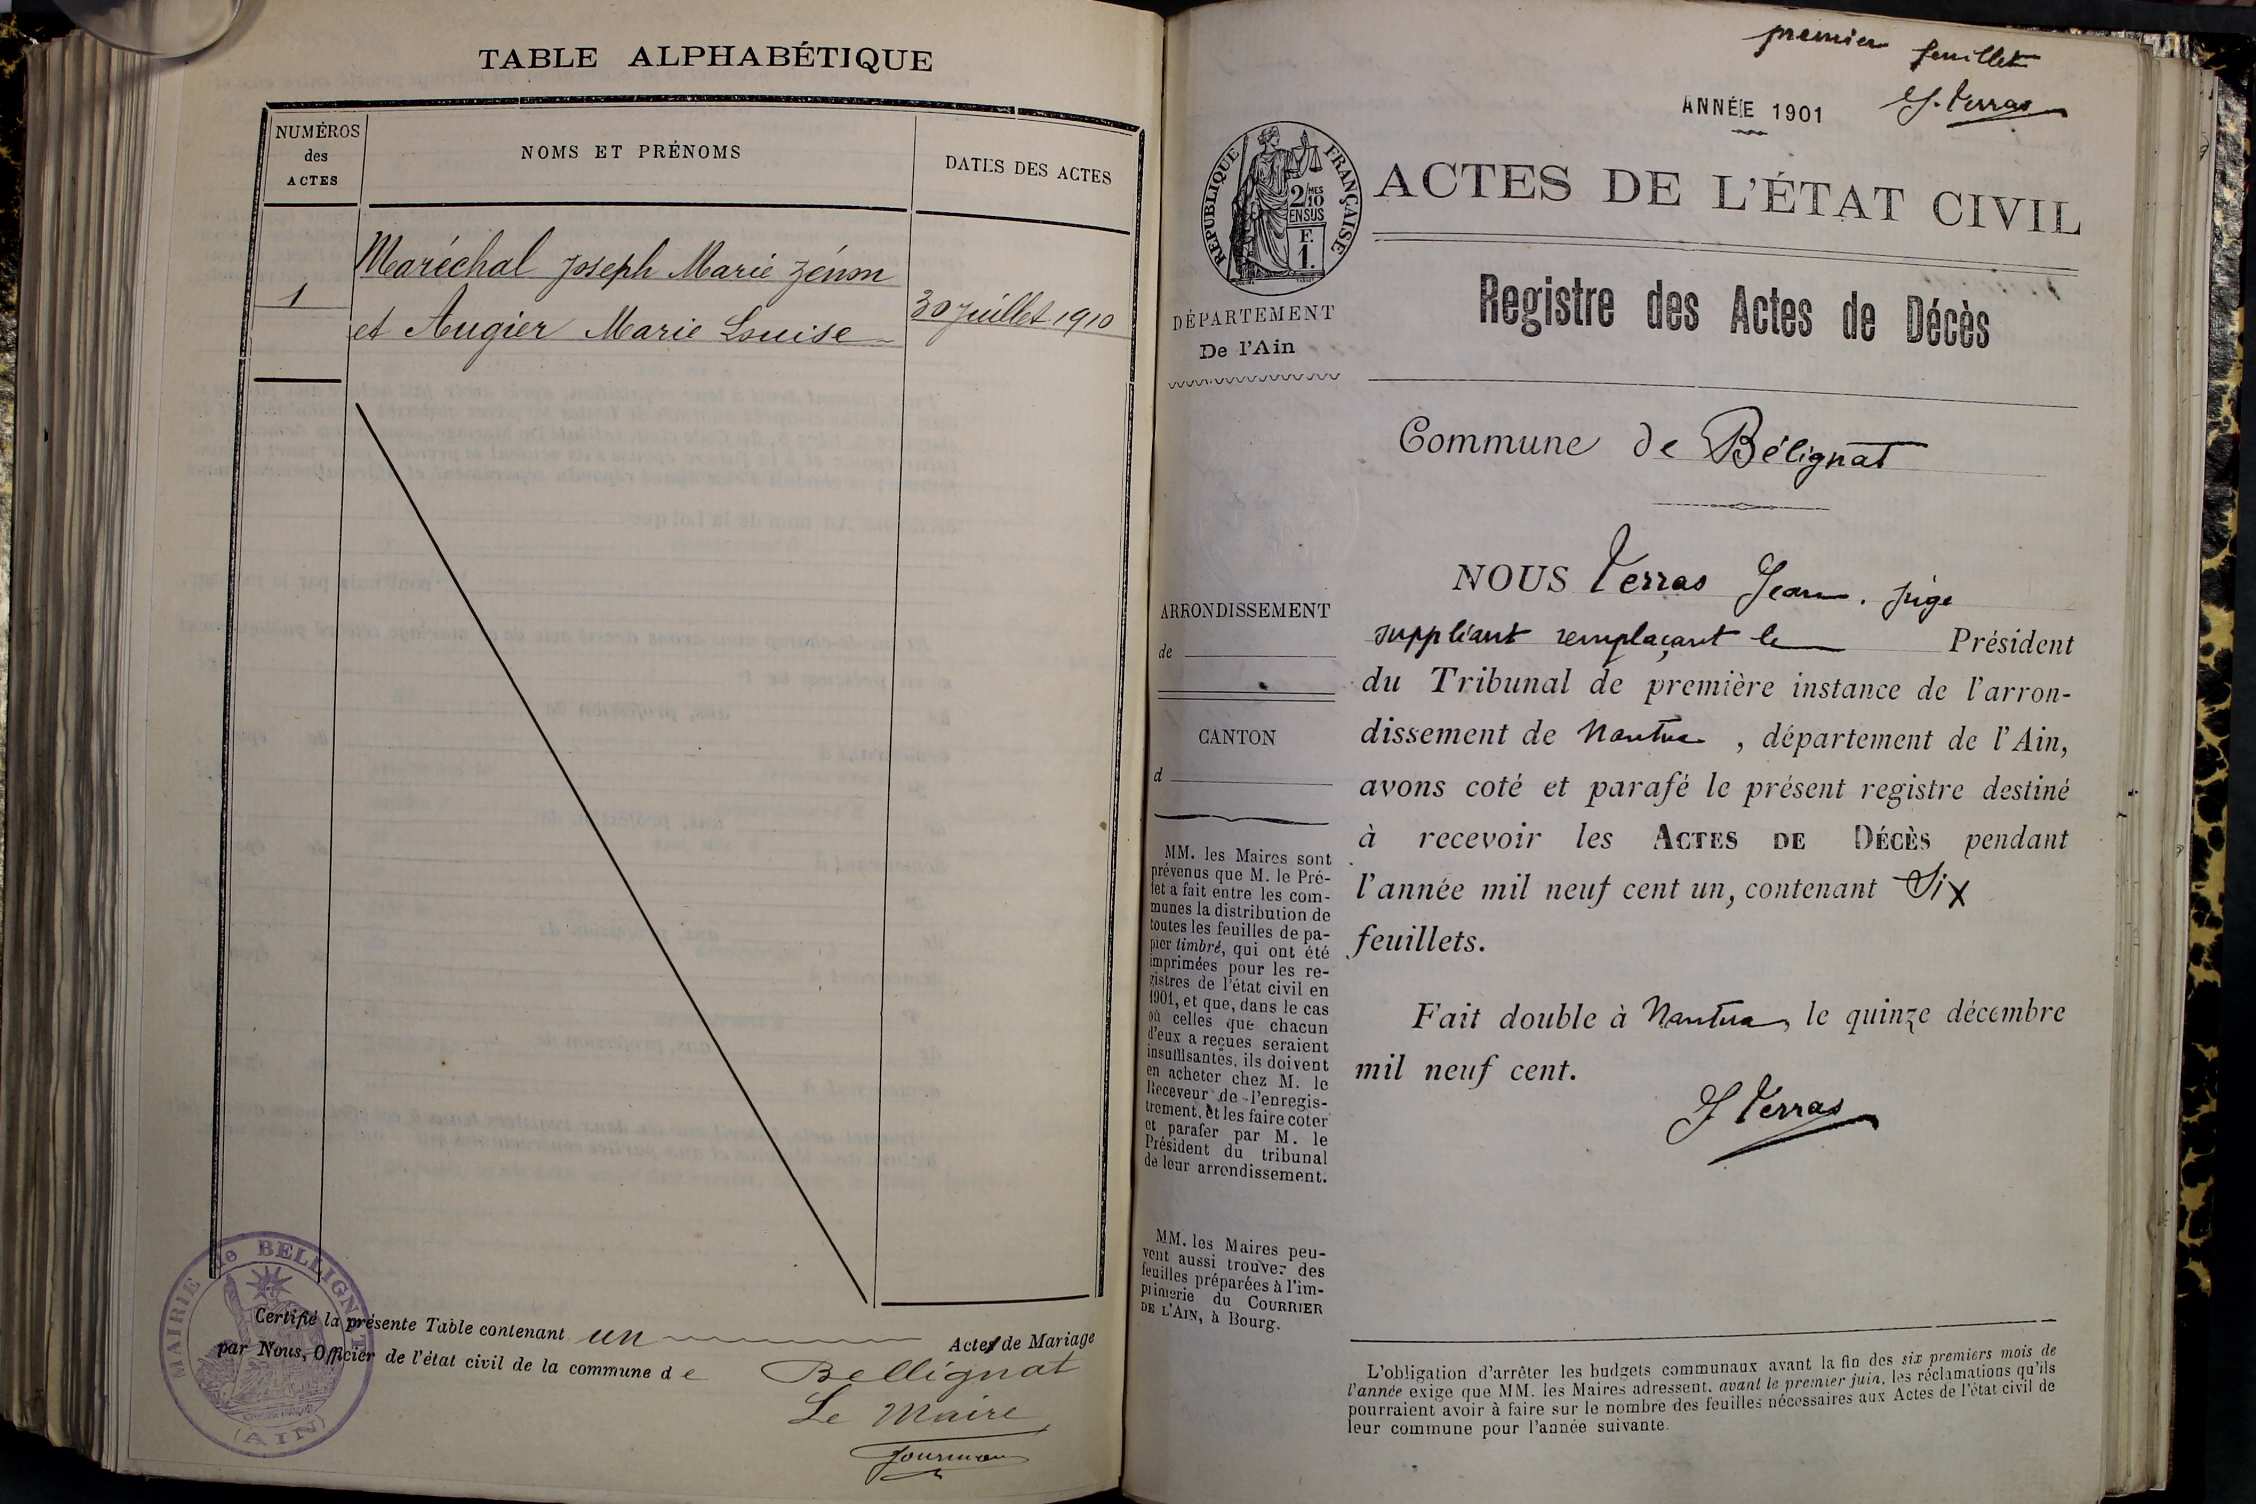 TABLE ALPHABÉTIQUE
NUMÉROS
des
ACTES
NOMS ET PRÉNOMS
DATES DES ACTES
1
Maréchal Joseph Marie Zénon
et Augier Marie Louise
30 Juillet 1910
Certifié la présente Table contenant un Acte de Mariage
par Nous, Officier de l'état civil de la commune de Bellignat
Le Maire
MAIRIE de BELLIGNAT
(AIN)
premier feuillet
J. Verras
ANNÉE 1901
RÉPUBLIQUE FRANÇAISE
2/10 MES
EN SUS
F.
1.
ACTES DE L'ÉTAT CIVIL
Registre des Actes de Décès
DÉPARTEMENT
De l'Ain
Commune de Bélignat
ARRONDISSEMENT
de
CANTON
d
MM. les Maires sont
prévenus que M. le Pré-
fet a fait entre les com-
munes la distribution de
toutes les feuilles de pa-
pier timbré, qui ont été
imprimées pour les re-
gistres de l'état civil en
1901, et que, dans le cas
où celles que chacun
d'eux a reçues seraient
insuffisantes, ils doivent
en acheter chez M. le
Receveur de l'enregis-
trement, et les faire coter
et parafer par M. le
Président du tribunal
de leur arrondissement.
MM. les Maires peu-
vent aussi trouver des
feuilles préparées à l'im-
primerie du COURRIER
DE L'AIN, à Bourg.
NOUS Verras Jean, juge
suppléant remplaçant le Président
du Tribunal de première instance de l'arron-
dissement de Nantua, département de l'Ain,
avons coté et parafé le présent registre destiné
à recevoir les ACTES DE DÉCÈS pendant
l'année mil neuf cent un, contenant Six
feuillets.
Fait double à Nantua, le quinze décembre
mil neuf cent.
J Verras
L'obligation d'arrêter les budgets communaux avant la fin des six premiers mois de
l'année exige que MM. les Maires adressent, avant le premier juin, les réclamations qu'ils
pourraient avoir à faire sur le nombre des feuilles nécessaires aux Actes de l'état civil de
leur commune pour l'année suivante.